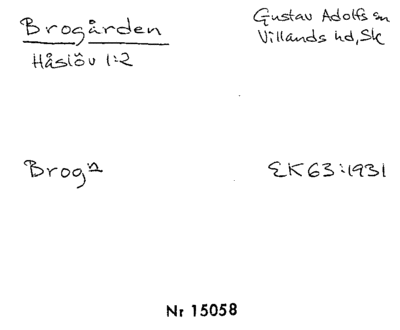 Brogården
Håslöv 1:2
Gustav Adolfs sn
Villands hd, Sk
Brogn
EK63:1931
Nr 15058